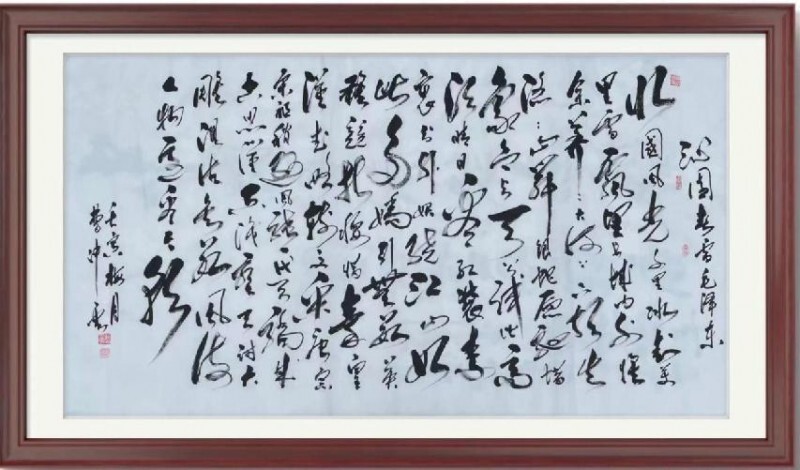 沁園春雪毛澤东
北國風光千里冰封万
里雪飘望长城内外惟
余莽莽大河上下頓失
滔滔山舞銀蛇原馳蜡
象欲与天公試比高
须晴日看红装素
裹分外妖娆江山如
此多嬌引無数英
雄競折腰惜秦皇
漢武略输文采唐宗
宋祖稍遜風騷一代天骄成
吉思汗只識弯弓射大
雕俱往矣数風流
人物還看今朝
壬寅梅月